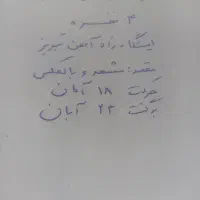 ۴ نفره
ایستگاه راه آهن تبریز
مقصد: مشهد و بالعکس
حرکت ۱۸ آبان
برگشت ۲۳ آبان